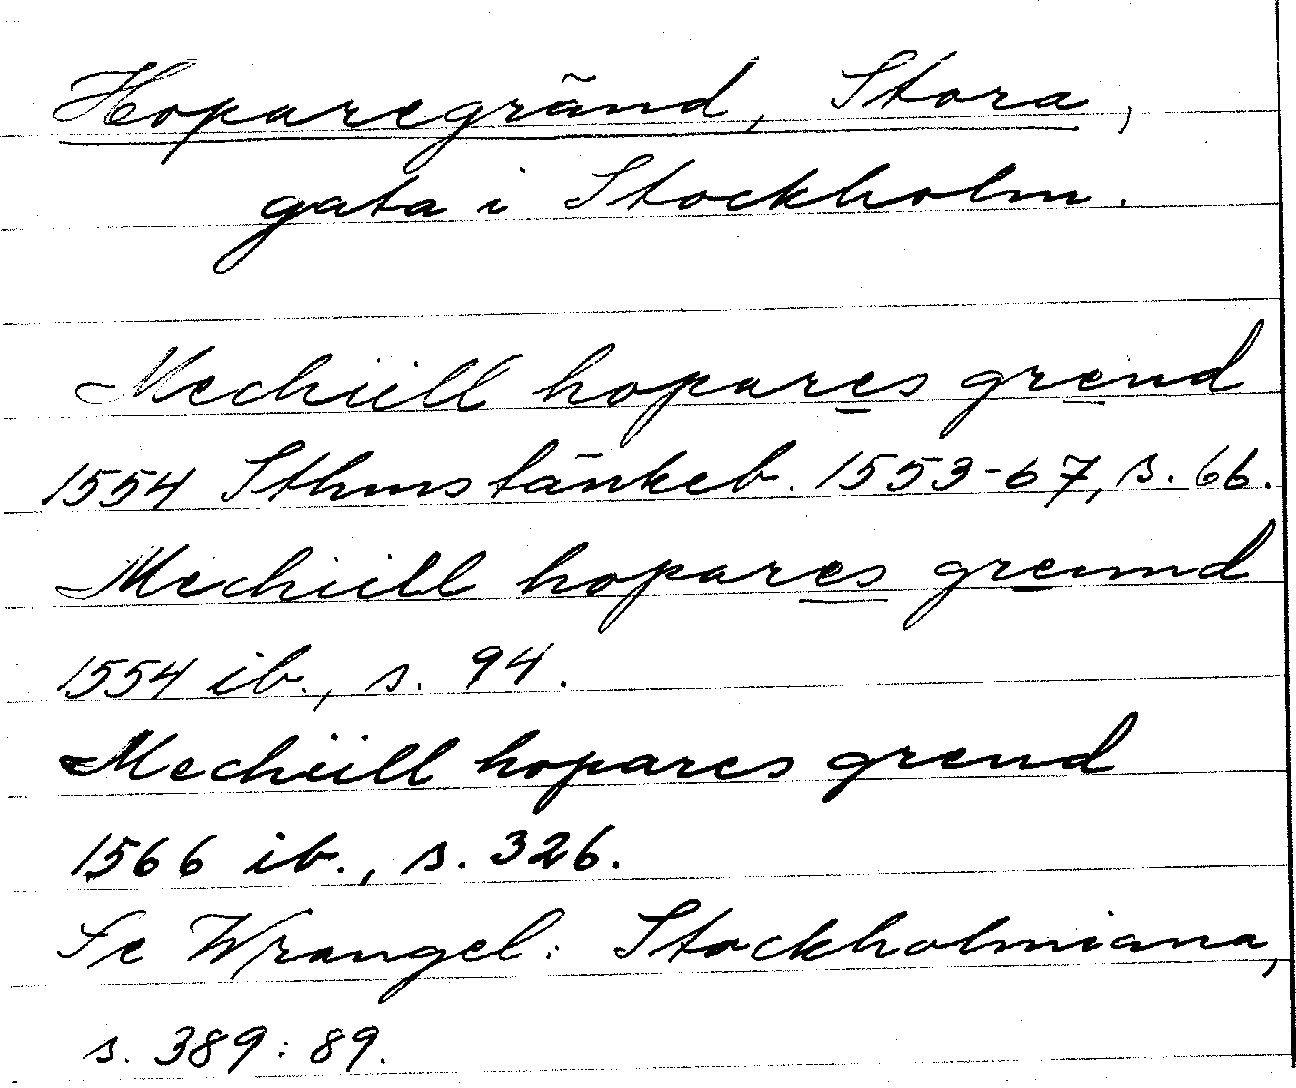 Hoparegränd, Stora,
gata i Stockholm.
Mechiill hopares grend
1554 Sthms tänkeb. 1553-67, s. 66.
Mechiill hopares grennd
1554 ib., s. 94.
Mechiill hopares grend
1566 ib., s. 326.
Se Wrangel: Stockholmiana,
s. 389: 89.